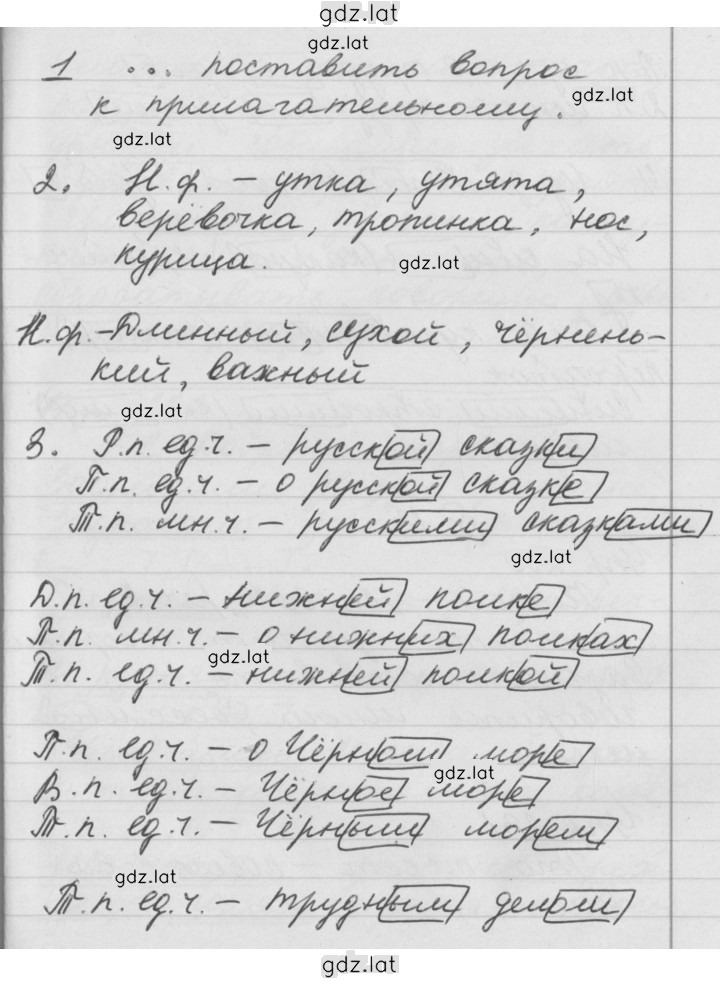 gdz.lat
gdz.lat
1 ... поставить вопрос
к прилагательному.
gdz.lat
gdz.lat
2. Н.ф. – утка, утята,
верёвочка, тропинка, нос,
курица.
gdz.lat
Н.ф.-Длинный, сухой, чёрнень-
кий, важный
gdz.lat
3. Р.п. ед.ч. – русской сказки
П.п. ед.ч. – о русской сказке
Т.п. мн.ч. – русскими сказками
gdz.lat
Д.п. ед.ч. – нижней полке
П.п. мн.ч. – о нижних полках
gdz.lat
Т.п. ед.ч. – нижней полкой
П.п. ед.ч. – о Чёрном море
gdz.lat
В.п. ед.ч. – Чёрное море
Т.п. ед.ч. – Чёрным морем
gdz.lat
Т.п. ед.ч. – трудным делом
gdz.lat